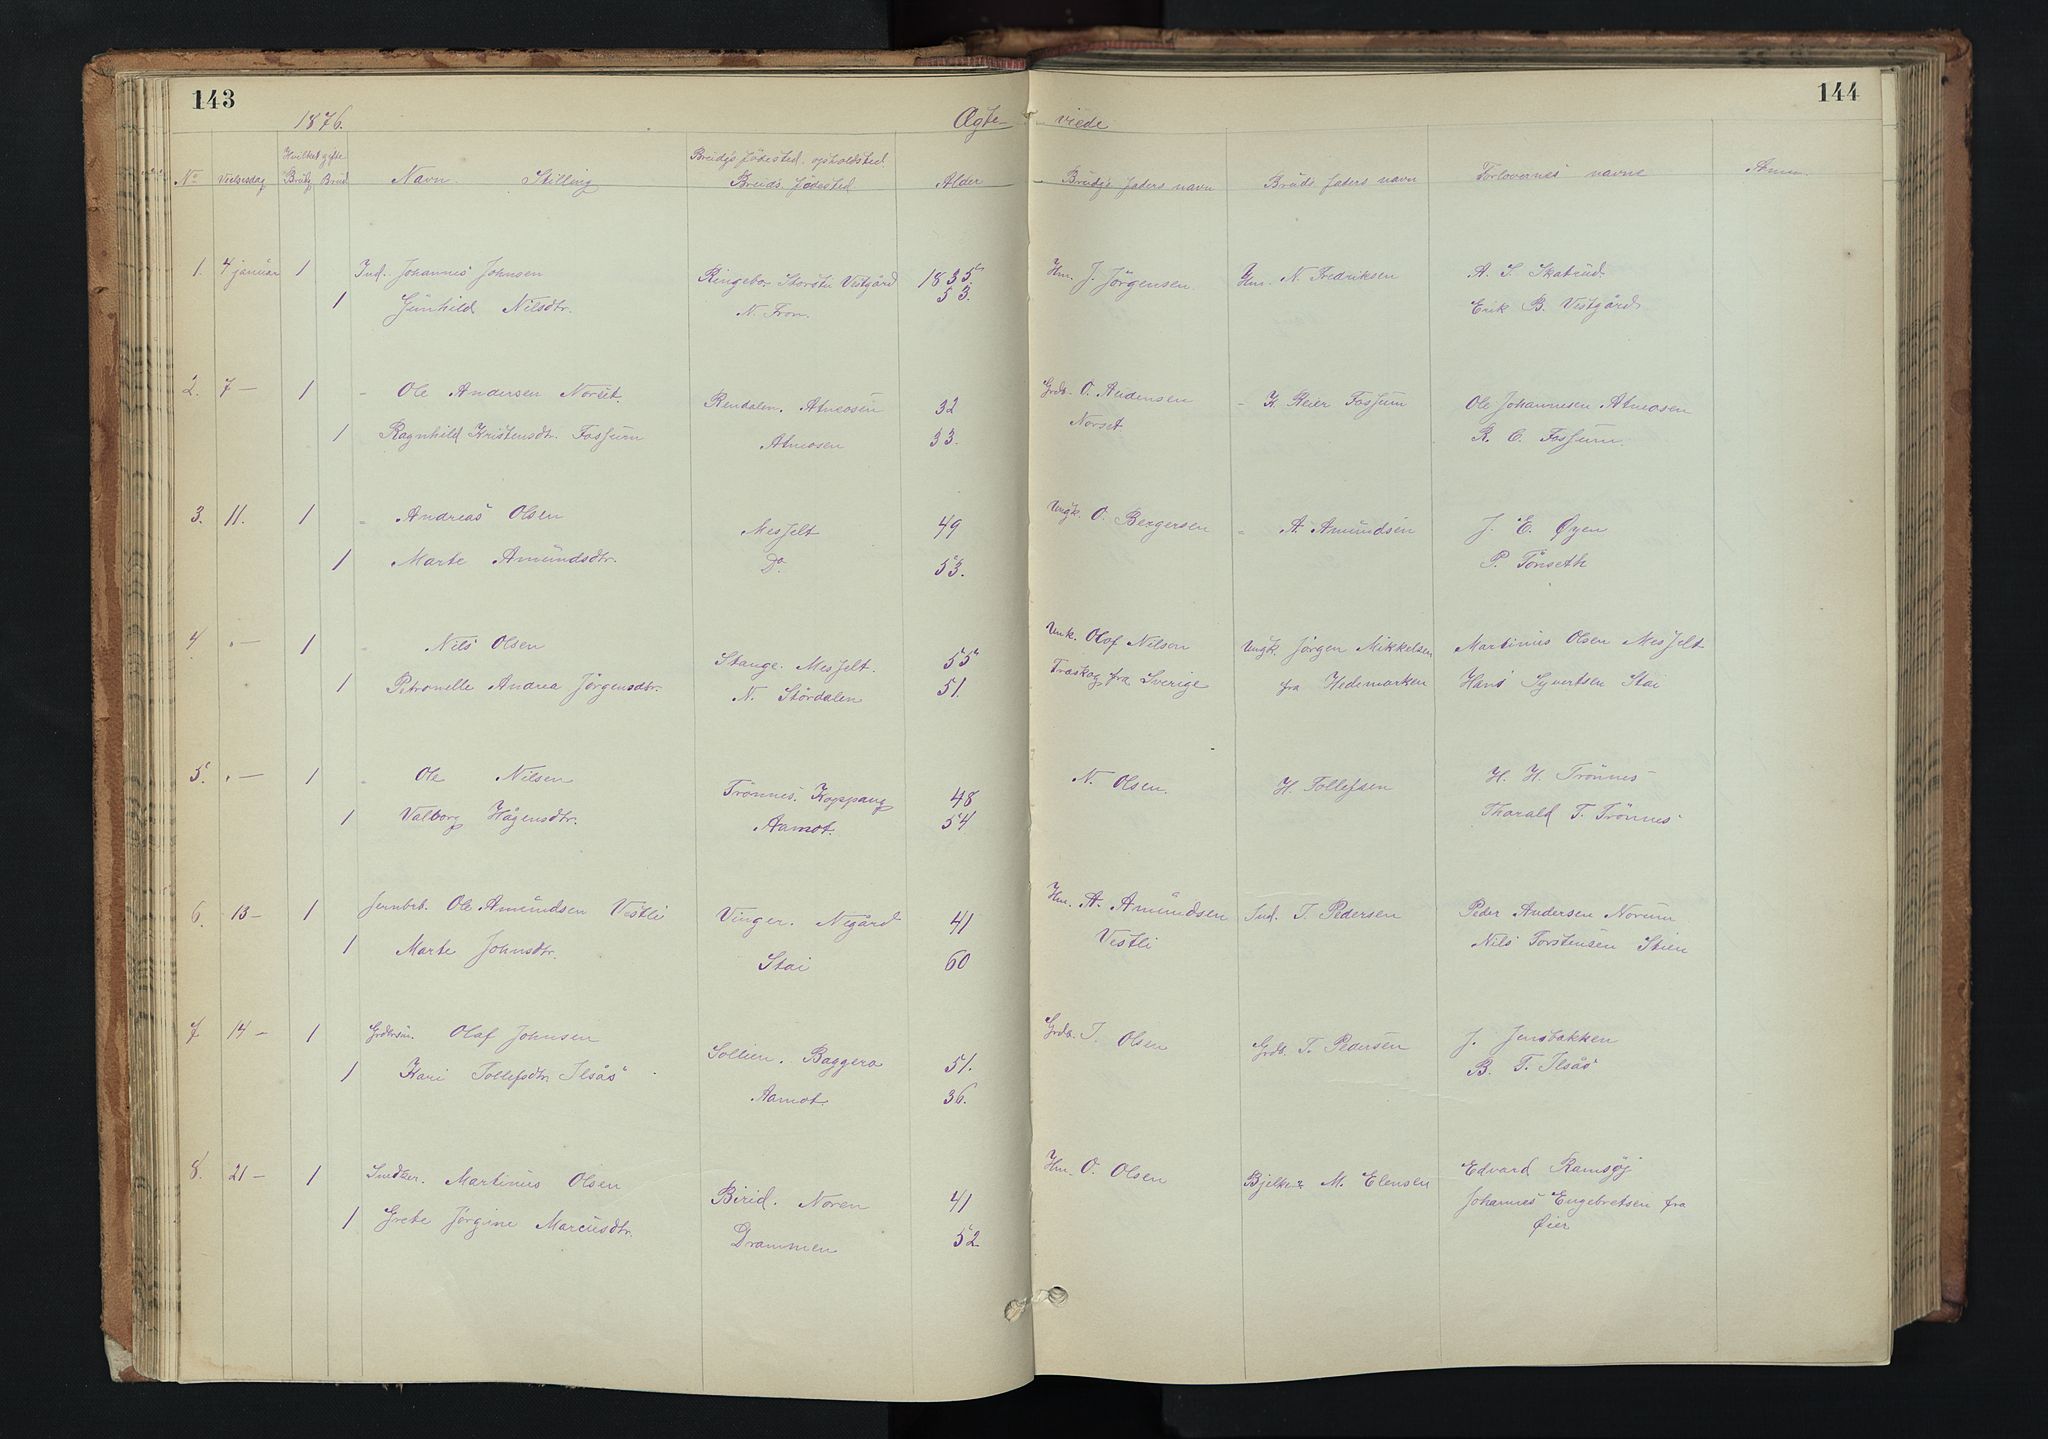 143
144
1876.
Ægte- viede
Hvilket gifte
Brudgs fødested. opholdsted
No Vielsesdag Brudg Brud Navn. Stilling Bruds fødested Alder Brudgs faders navn Bruds faders navn Forlovernes navne Anm.
1. 4 januar 1 Ind. Johannes Johnsen Ringebo. Storstu Vestgård 1835 Hm. J Jörgensen. Hm. N. Fredriksen A. S. Skatrud.
1 Gunhild Nilsdtr. N. Fron. 53. Erik B. Vestgård
2. 7 — 1 - Ole Andersen Norset. Rendalen. Atneosen 32 Grdb. O. Audensen - K. Reier Fossum Ole Johannesen Atneosen
1 Ragnhild Kristensdtr. Fossum Atneosen 33. Norset R. C. Fossum.
3. 11. 1 - Andreas Olsen Messelt 49 Ungk. O. Bergersen - A. Amundsen J. E. Øyen
1 Marte Amundsdtr. Do. 53. P. Tönseth
4 . — 1 - Nils Olsen Stange. Messelt. 55 Unk. Olof Nilson Ungk. Jørgen Mikkelsen Martinius Olsen Messelt
1 Petronelle Andrea Jørgensdtr. N. Stördalen 51. fra Sverige fra Hedemarken Hans Syvertsen Stai
5. . — 1 - Ole Nilsen Trönnes. Koppang 48 N. Olsen. H. Tollefsen H. H. Trönnes
1 Valborg Hågensdtr. Aamot. 54 Thorald T. Trönnes
6. 13 — 1 Jernbrb. Ole Amundsen Vestli Vinger. Negård 41 Hm. A. Amundsen Ind. T. Pedersen Peder Andersen Norum
1 Marte Johnsdtr. Stai 60 Vestli Nils Torstensen Stien
7 14 — 1 Grdbrsøn. Olaf Johnsen Sollien. Baggera 51. Grdb. T. Olsen Grdb. T. Pedersen J. Jensbakken
1 Kari Tollefsdtr. Ilsås Aamot. 36. B. T. Ilsås
8. 21 — 1 Snedker. Martinus Olsen Birid. Noren 41 Hm. O. Olsen M. Elensen Edvard Ramsøj
1 Grete Jørgine Marcusdtr. Drammen 52 Johannes Engebretsen fra
Øier